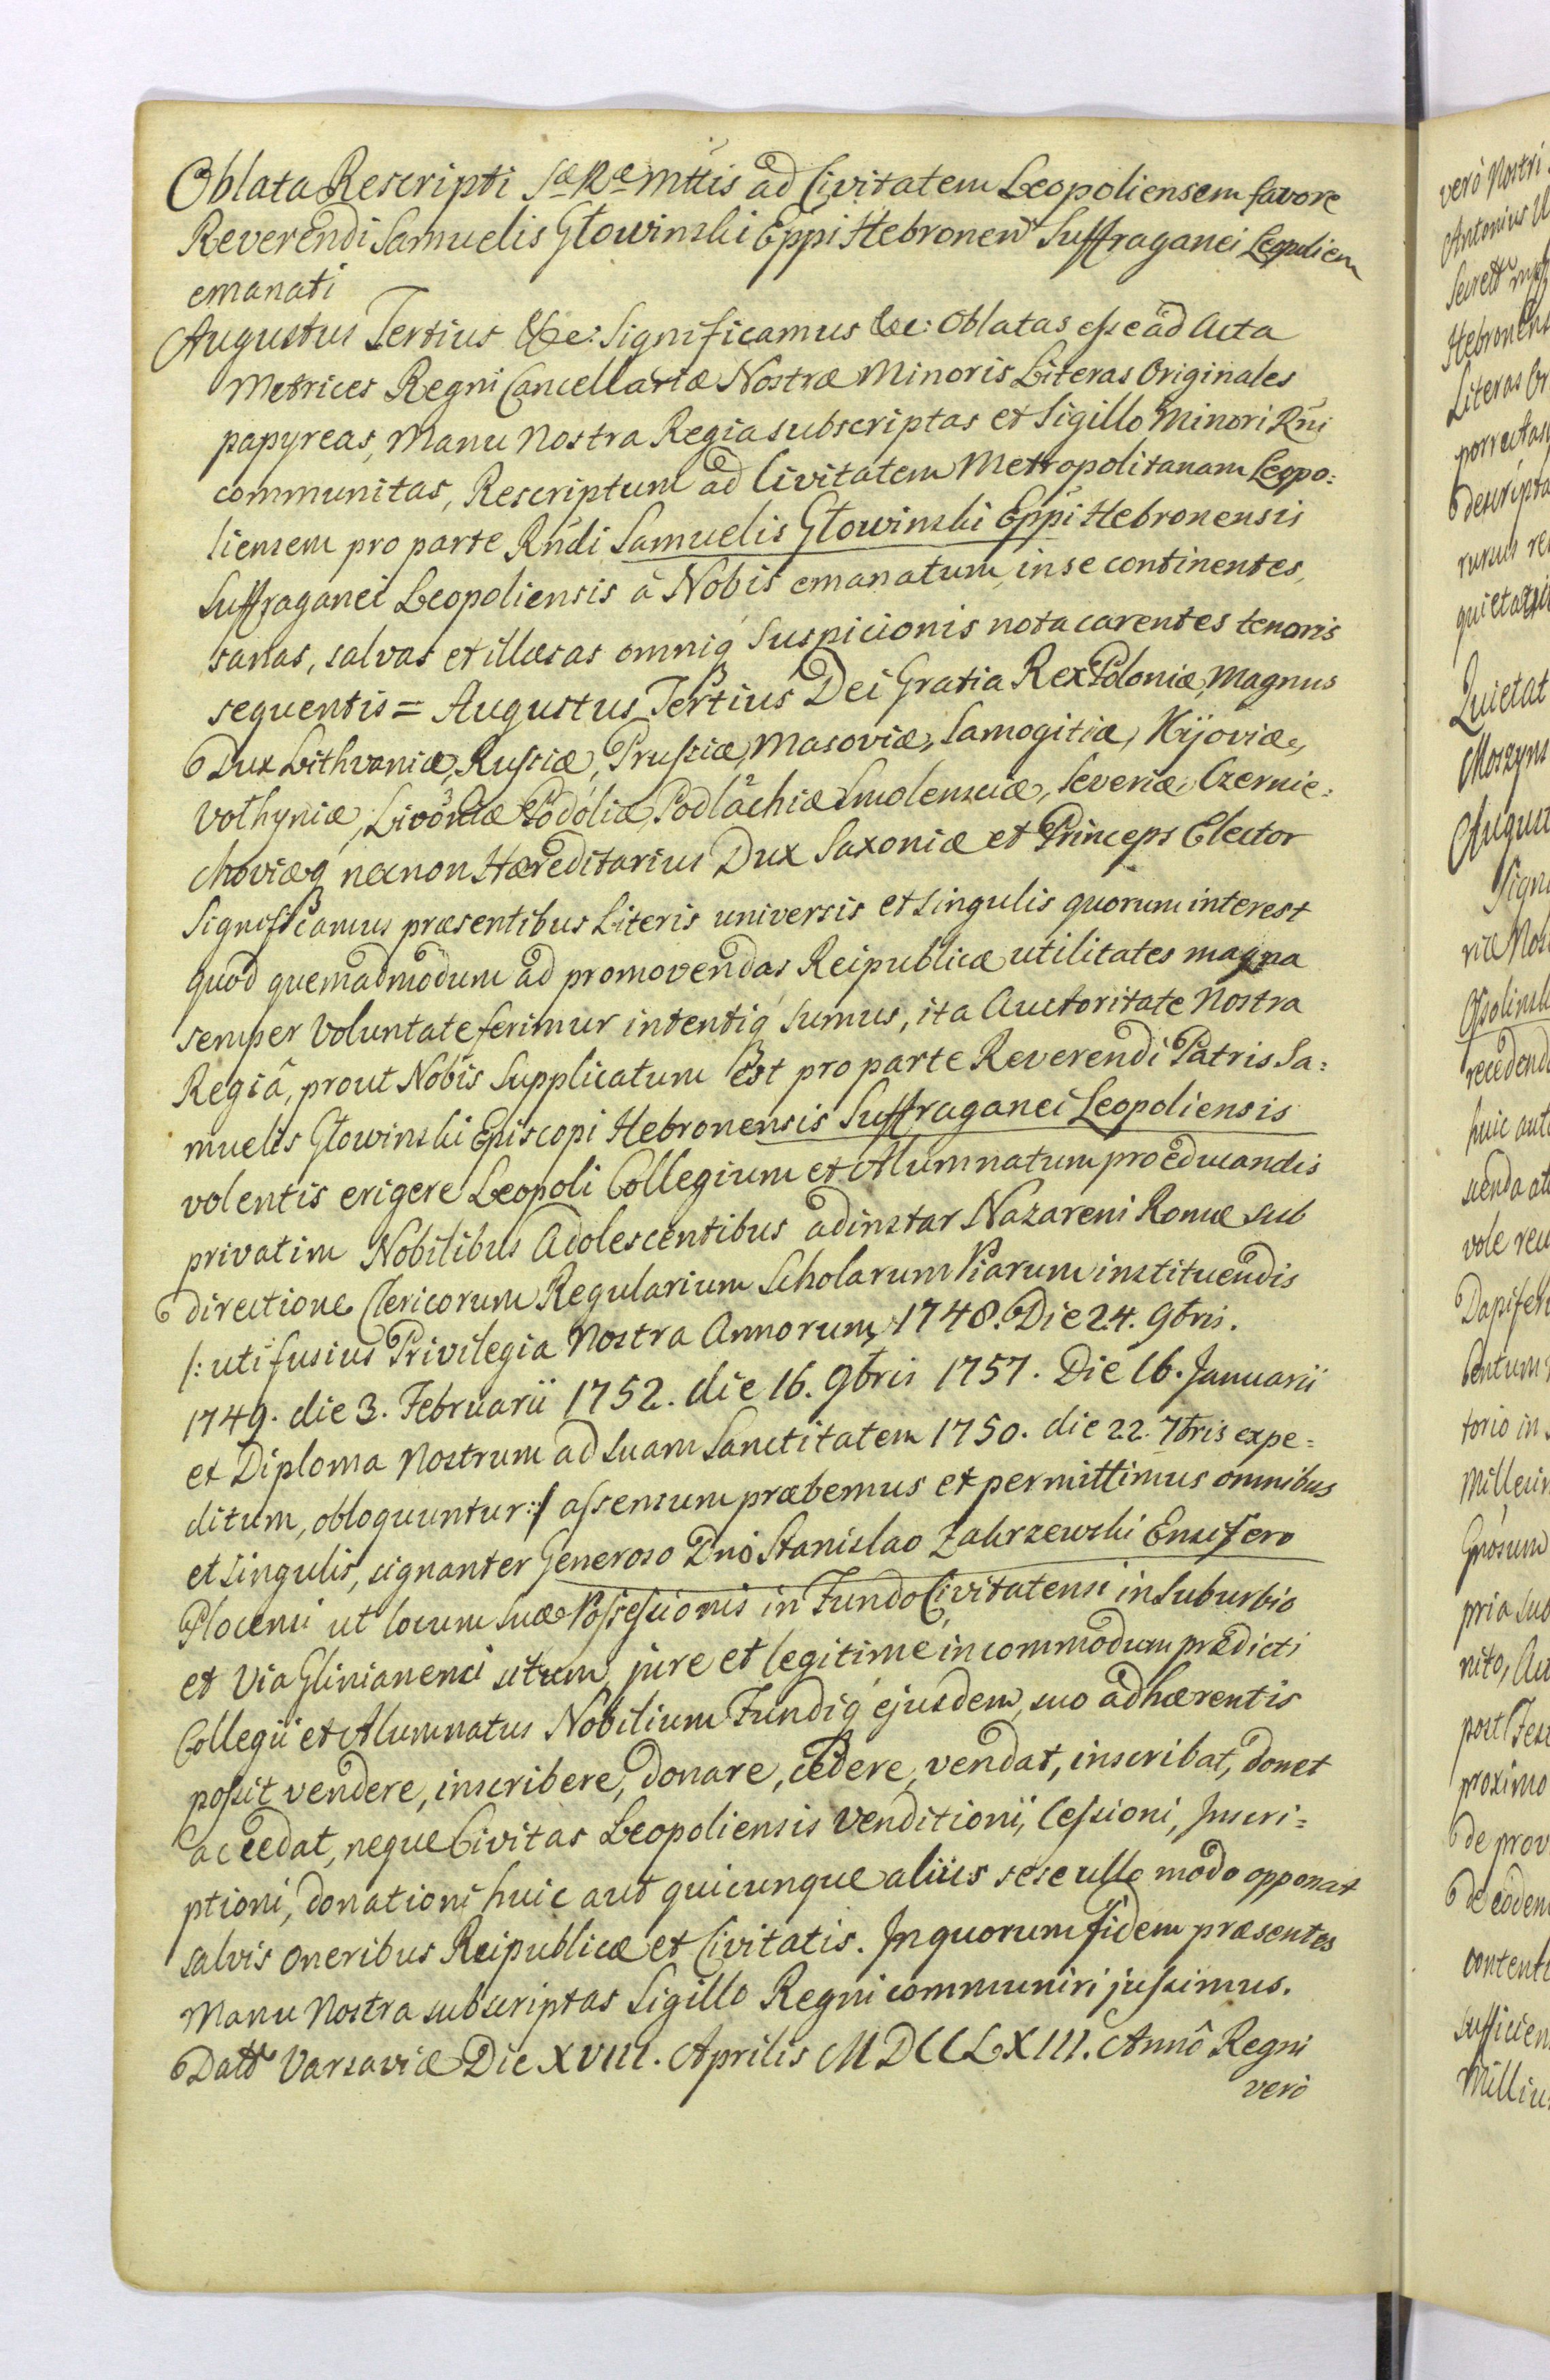 Oblata Rescripti Sæ Ræ Mttis ad Civitatem Leopoliensem favore
Reverendi Samuelis Głowinski Eppi Hebronen Suffraganei Leopolien
emanati
Augustus Tertius &c: Significamus &c: Oblatas esse ad Acta
Metrices Regni Cancellariæ Nostræ Minoris Literas Originales
papyreas, Manu Nostra Regia subscriptas et Sigillo Minori Rni
communitas, Rescriptum ad Civitatem Metropolitanam Leopo:
liensem pro parte Rndi Samuelis Głowinski Eppi Hebronensis
Suffraganei Leopoliensis à Nobis emanatum, in se continentes,
sanas, salvas et illæsas omniq́ Suspicionis nota carentes tenoris
sequentis = Augustus Tertius Dei Gratia Rex Poloniæ, Magnus
Dux Lithvaniæ, Russiæ, Prussiæ, Masoviæ, Samogitiæ, Kijoviæ,
Volhyniæ, Livoniæ Podoliæ, Podlachiæ Smolensciæ, Severiæ, Czernie:
choviæq́ necnon Hæreditarius Dux Saxoniæ et Princeps Elector
Significamus præsentibus Literis universis et singulis quorum interest
quod quemadmodum ad promovendas Reipublicæ utilitates magna
semper Voluntate ferimur intentiq́ sumus, ita Auctoritate Nostra
Regiâ, prout Nobis Supplicatum est pro parte Reverendi Patris Sa:
muelis Głowinski Episcopi Hebronensis Suffraganei Leopoliensis
volentis erigere Leopoli Collegium et Alumnatum pro educandis
privatim Nobilibus Adolescentibus ad instar Nazareni Romæ sub
directione Clericorum Regularium Scholarum Piarum instituendis
/: uti fusius Privilegia Nostra Annorum, 1748. Die 24. 9bris.
1749. die 3. Februarii 1752. die 16. 9bris 1757. Die 16. Januarii
et Diploma Nostrum ad Suam Sanctitatem 1750. die 22. 7bris expe:
ditum, obloquuntur :/ assensum præbemus et permittimus omnibus
et singulis, signanter Generoso Dno Stanislao Zakrzewski Ensifero
Plocensi ut locum suæ Possessionis in Fundo Civitatensi in Suburbio
et Via Glinianensi situm, jure et legitime in commodum prædicti
Collegii et Alumnatus Nobilium Fundiq́ ejusdem, suo adhærentis
possit vendere, inscribere, donare, cedere, vendat, inscribat, donet
ac cedat, neque Civitas Leopoliensis Venditioni, Cessioni, Inscri:
ptioni, donationi huic aut quicunque aliis sese ullo modo opponat
salvis Oneribus Reipublicæ et Civitatis. In quorum fidem præsentes
Manu Nostra subscriptas Sigillo Regni communiri jussimus.
Datt Varsaviæ Die XVIII. Aprilis MDCCLXIII. Annô Regni
vero
verò Nostri
Antonius
Hebronens
Literas Or
porrectas
descripta
rursus re
Quietat
Moszyns
August
Signi
riæ Nos
Ossolinsk
recedend
huic
vole
Dapifer
torio in
Millesim
Gnosum
pria sub
nito, Au
post Fest
proximo
de prov
de eodem
contenti
sufficien
Milliu